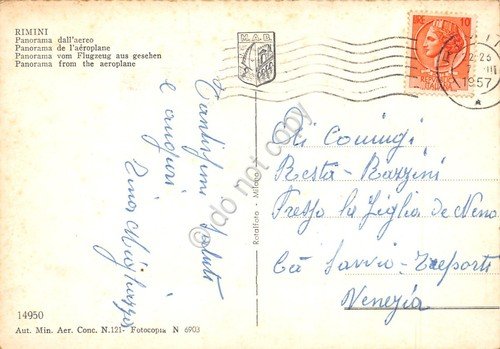 RIMINI
Panorama dall'aereo
Panorama de l'aéroplane
Panorama vom Flugzeug aus gesehen
Panorama from the aeroplane
M.A.B.
LIRE 10
ITALIANA
22-23
1957
Tantissimi Saluti
e auguri
do not copy
Rotalfoto - Milano
Ai Coniugi
Resta - Razzini
Presso la Figlia di
Cà Savio - Treporti
Venezia
14950
Aut. Min. Aer. Conc. N.121 - Fotocopia N 6903